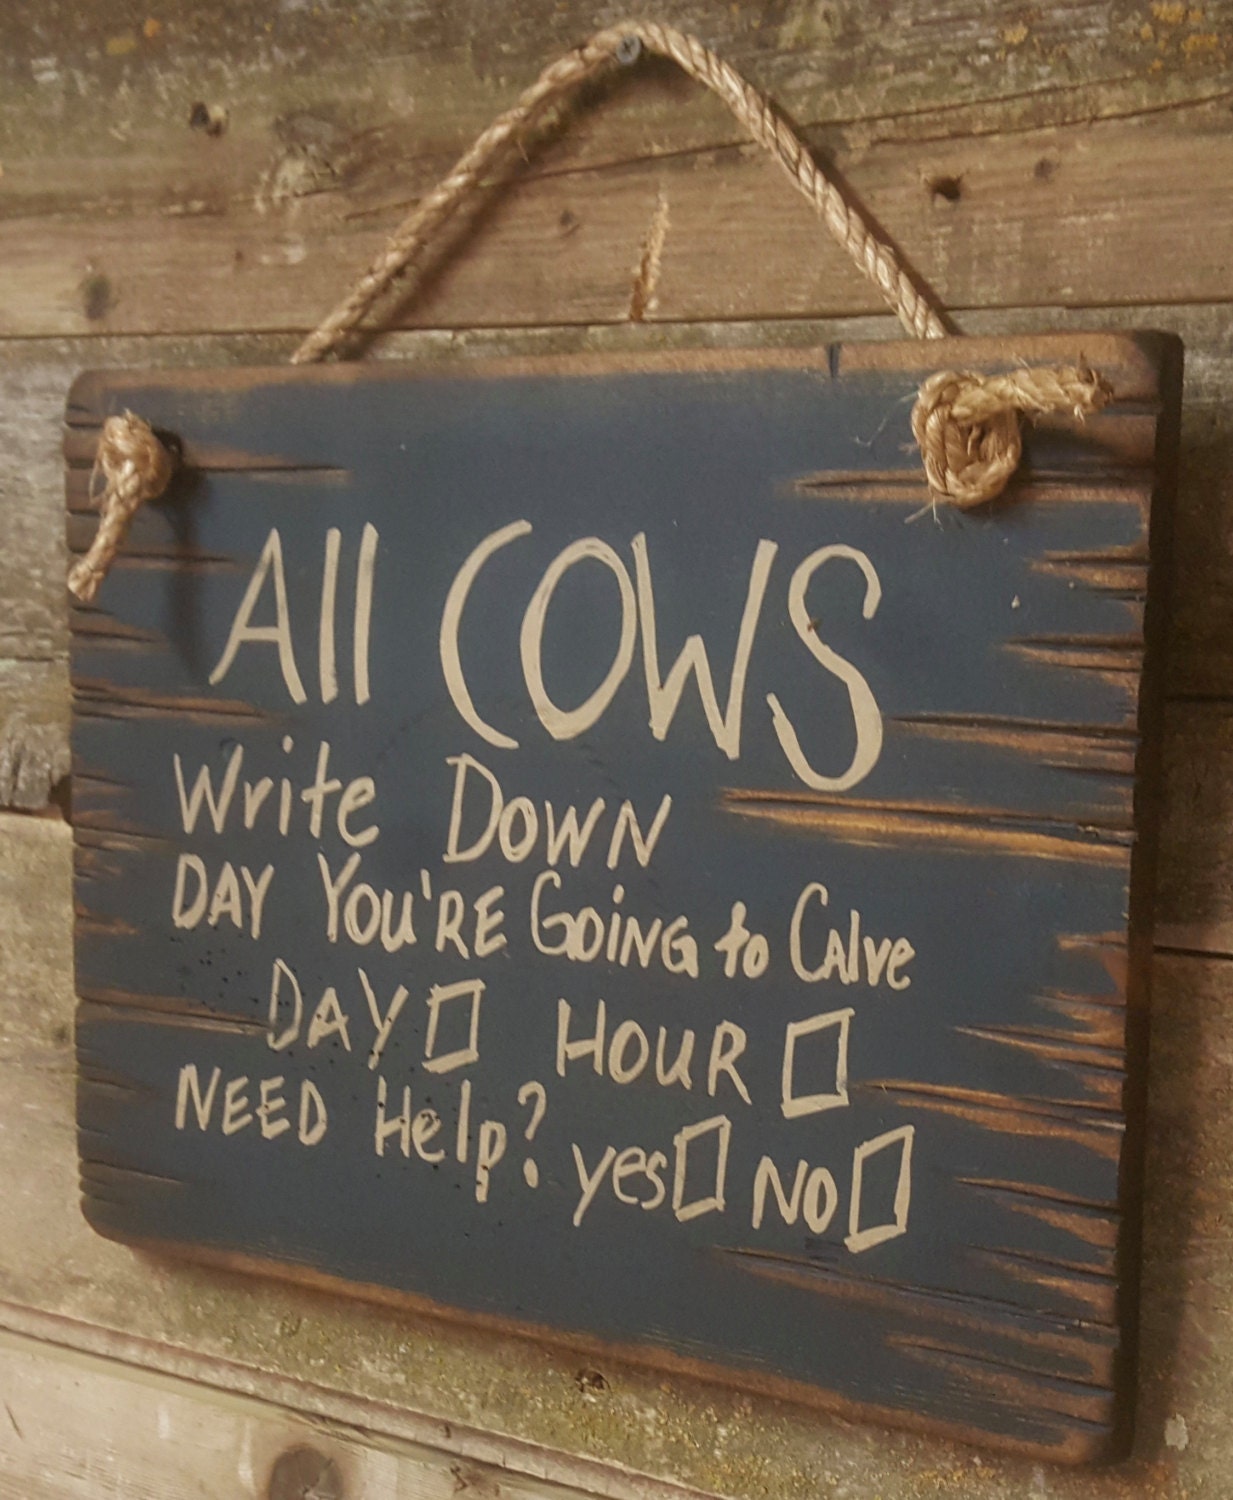 All COWS
Write DOWN
DAY YOU'RE GOiNG to CAlve
DAY☐ HOUR☐
NEED Help? yes☐ NO☐